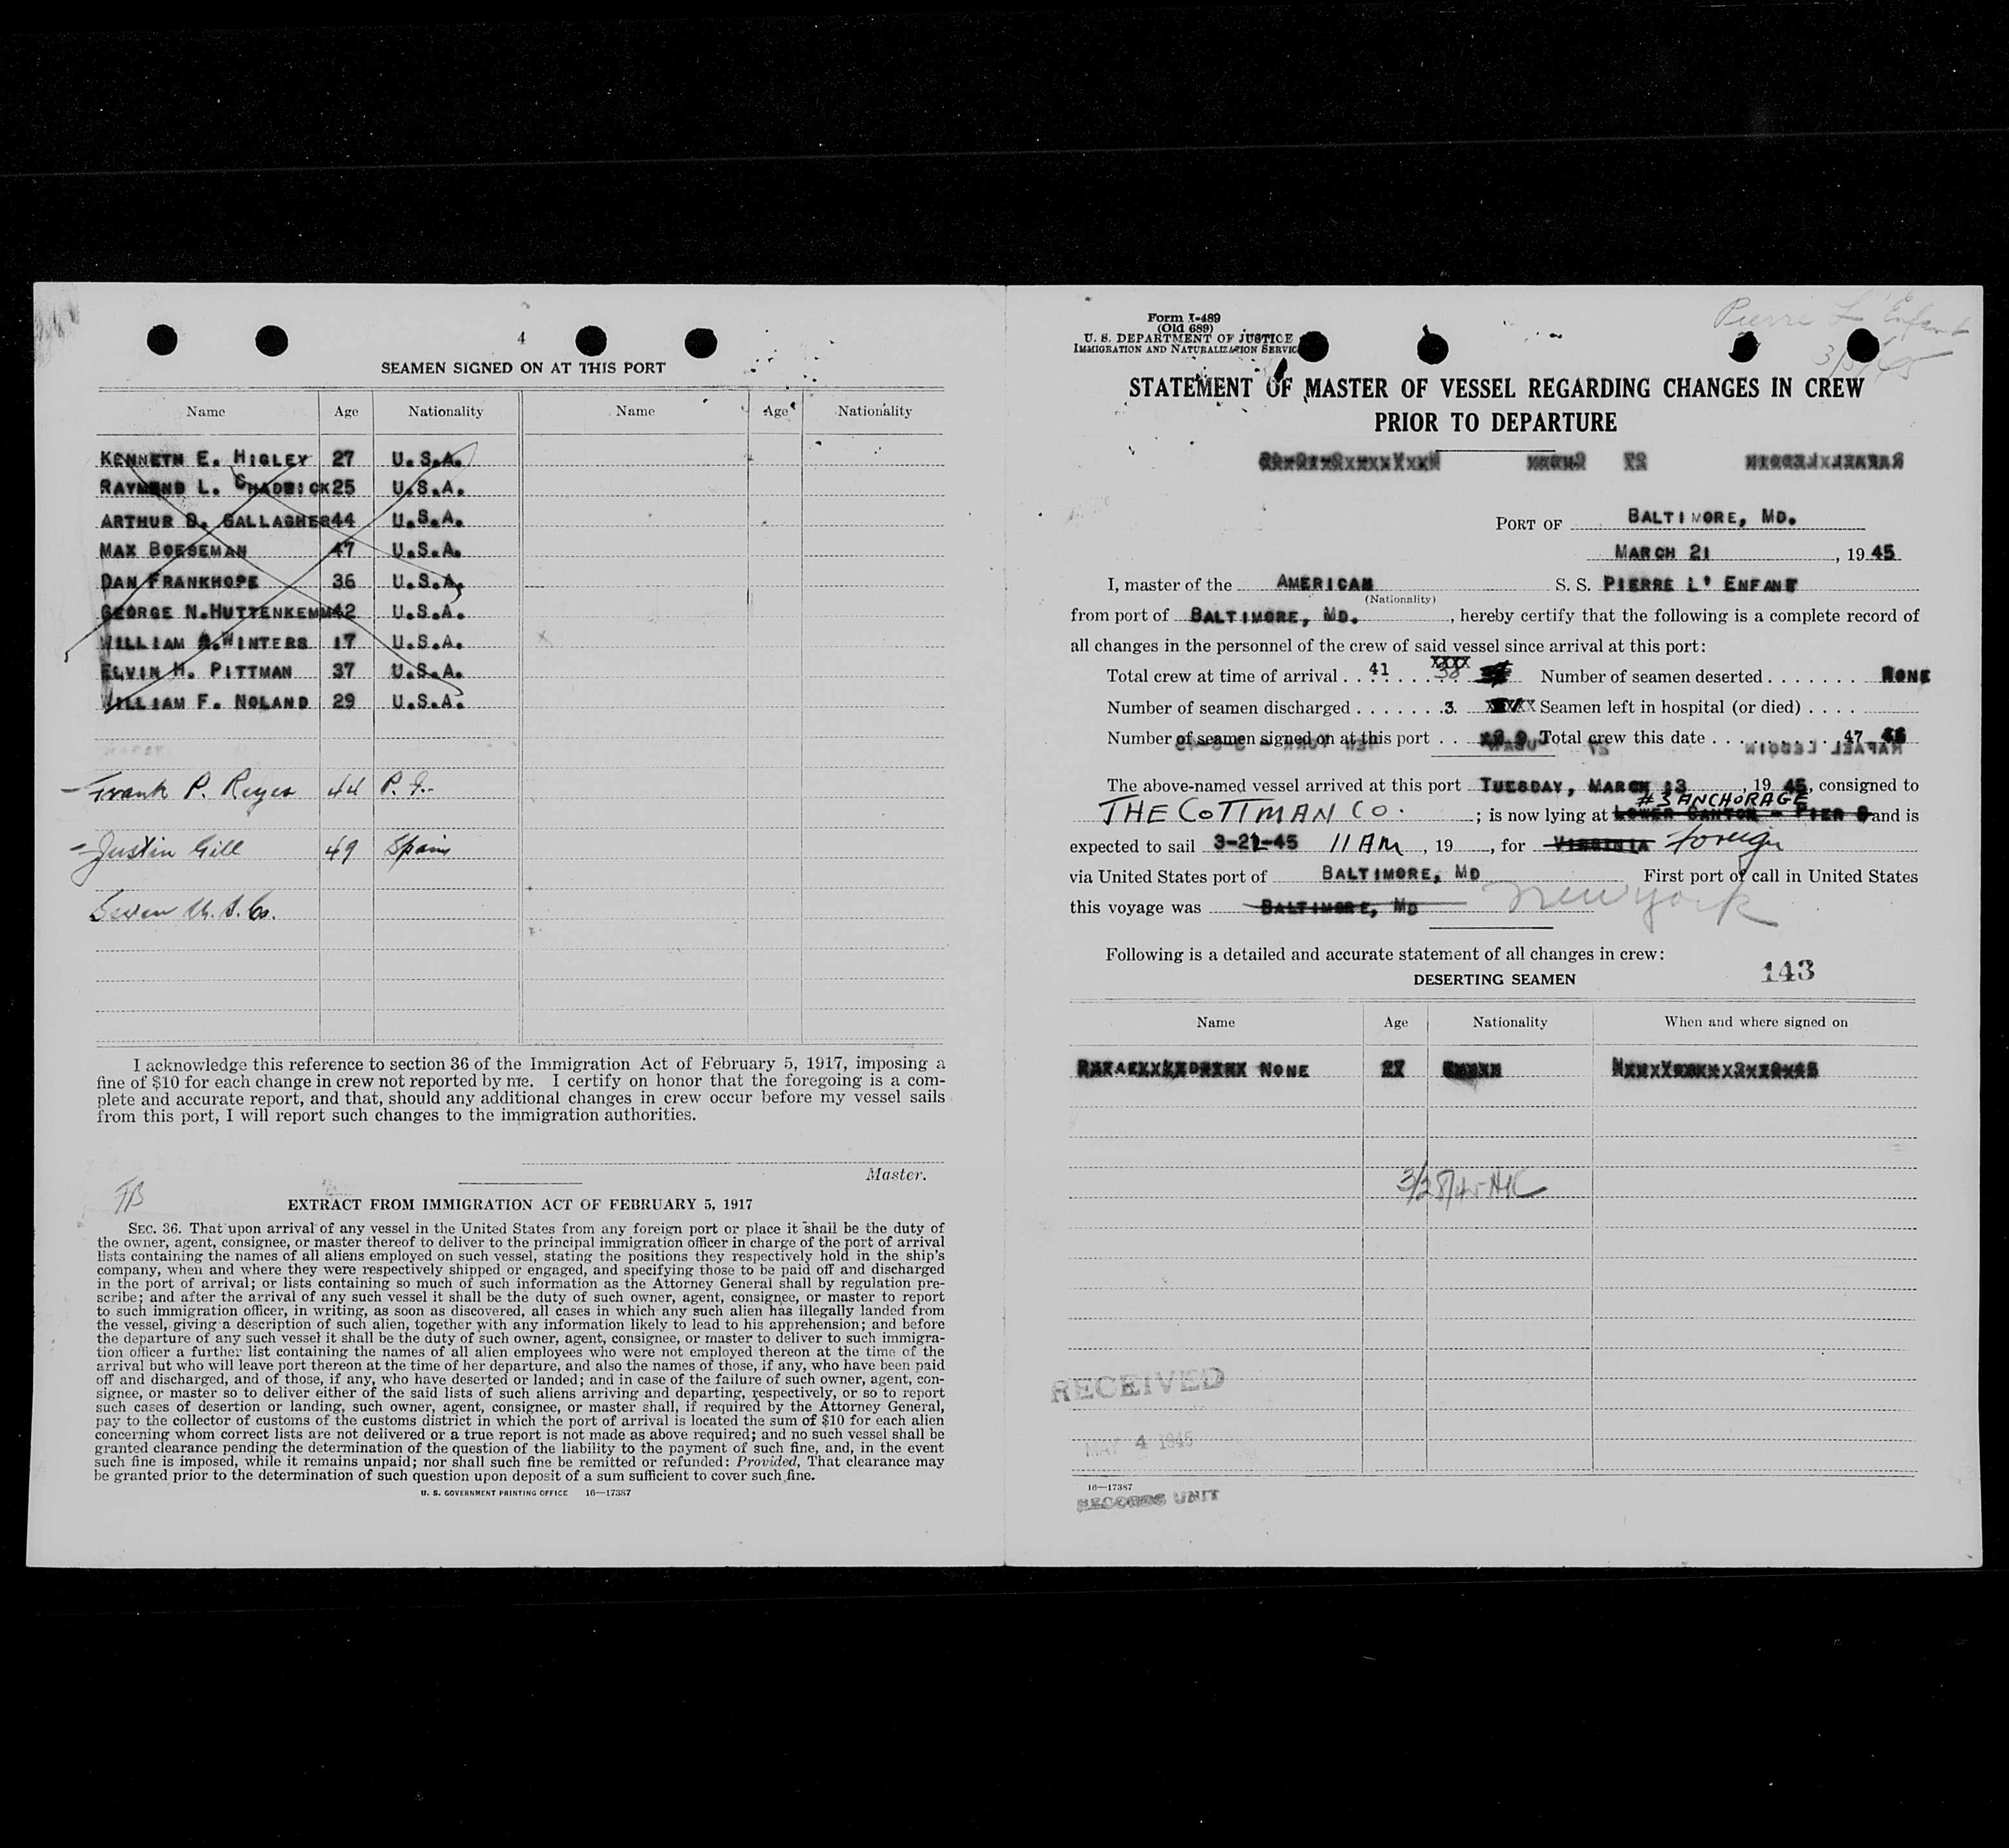 4
SEAMEN SIGNED ON AT THIS PORT
Name Age Nationality Name Age Nationality
KENNETH E. HIGLEY 27 U.S.A.
RAYMOND L. CHADWICK 25 U.S.A.
ARTHUR D. GALLAGHER 44 U.S.A.
MAX BOESEMAN 47 U.S.A.
DAN FRANKHOPE 36 U.S.A.
GEORGE N. HUTTENKEMM 42 U.S.A.
WILLIAM A. WINTERS 17 U.S.A.
ELVIN H. PITTMAN 37 U.S.A.
WILLIAM F. NOLAND 29 U.S.A.
Frank P. Reyes 44 P. I.
Justin Gill 49 Spain
Seven U.S. Cs.
I acknowledge this reference to section 36 of the Immigration Act of February 5, 1917, imposing a
fine of $10 for each change in crew not reported by me. I certify on honor that the foregoing is a com-
plete and accurate report, and that, should any additional changes in crew occur before my vessel sails
from this port, I will report such changes to the immigration authorities.
Master.
EXTRACT FROM IMMIGRATION ACT OF FEBRUARY 5, 1917
SEC. 36. That upon arrival of any vessel in the United States from any foreign port or place it shall be the duty of
the owner, agent, consignee, or master thereof to deliver to the principal immigration officer in charge of the port of arrival
lists containing the names of all aliens employed on such vessel, stating the positions they respectively hold in the ship's
company, when and where they were respectively shipped or engaged, and specifying those to be paid off and discharged
in the port of arrival; or lists containing so much of such information as the Attorney General shall by regulation pre-
scribe; and after the arrival of any such vessel it shall be the duty of such owner, agent, consignee, or master to report
to such immigration officer, in writing, as soon as discovered, all cases in which any such alien has illegally landed from
the vessel, giving a description of such alien, together with any information likely to lead to his apprehension; and before
the departure of any such vessel it shall be the duty of such owner, agent, consignee, or master to deliver to such immigra-
tion officer a further list containing the names of all alien employees who were not employed thereon at the time of the
arrival but who will leave port thereon at the time of her departure, and also the names of those, if any, who have been paid
off and discharged, and of those, if any, who have deserted or landed; and in case of the failure of such owner, agent, con-
signee, or master so to deliver either of the said lists of such aliens arriving and departing, respectively, or so to report
such cases of desertion or landing, such owner, agent, consignee, or master shall, if required by the Attorney General,
pay to the collector of customs of the customs district in which the port of arrival is located the sum of $10 for each alien
concerning whom correct lists are not delivered or a true report is not made as above required; and no such vessel shall be
granted clearance pending the determination of the question of the liability to the payment of such fine, and, in the event
such fine is imposed, while it remains unpaid; nor shall such fine be remitted or refunded: Provided, That clearance may
be granted prior to the determination of such question upon deposit of a sum sufficient to cover such fine.
U. S. GOVERNMENT PRINTING OFFICE 16—17387
Form I-489
(Old 689)
U. S. DEPARTMENT OF JUSTICE
IMMIGRATION AND NATURALIZATION SERVICE
Pierre L' Enfant
STATEMENT OF MASTER OF VESSEL REGARDING CHANGES IN CREW
PRIOR TO DEPARTURE
PORT OF BALTIMORE, MD.
MARCH 21, 1945
I, master of the AMERICAN S. S. PIERRE L' ENFANT
(Nationality)
from port of BALTIMORE, MD., hereby certify that the following is a complete record of
all changes in the personnel of the crew of said vessel since arrival at this port:
Total crew at time of arrival . . 41 38 Number of seamen deserted . . . . . . . NONE
Number of seamen discharged . . . . . . . 3. Seamen left in hospital (or died) . . . .
Number of seamen signed on at this port . . 9 Total crew this date . . . . . . . . 47
The above-named vessel arrived at this port TUESDAY, MARCH 13, 1945, consigned to
THE COTTMAN CO. ; is now lying at #3 ANCHORAGE LOWER CANTON - PIER 8 and is
expected to sail 3-21-45 11 AM, 19 , for VIRGINIA foreign
via United States port of BALTIMORE, MD First port of call in United States
this voyage was BALTIMORE, MD New york
Following is a detailed and accurate statement of all changes in crew:
143
DESERTING SEAMEN
Name Age Nationality When and where signed on
NONE 27
3/28/45 HC
RECEIVED
MAY 4 1945
16—17387
RECORDS UNIT